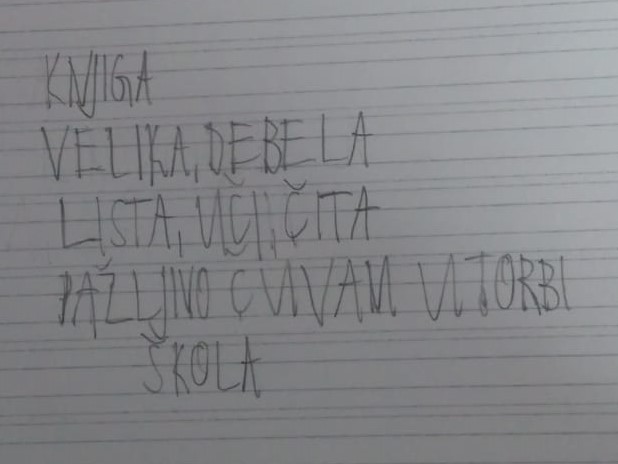 KNJIGA
VELIKA, DEBELA
LISTA, UČI, ČITA
PAŽLJIVO ČUVAM U TORBI
ŠKOLA